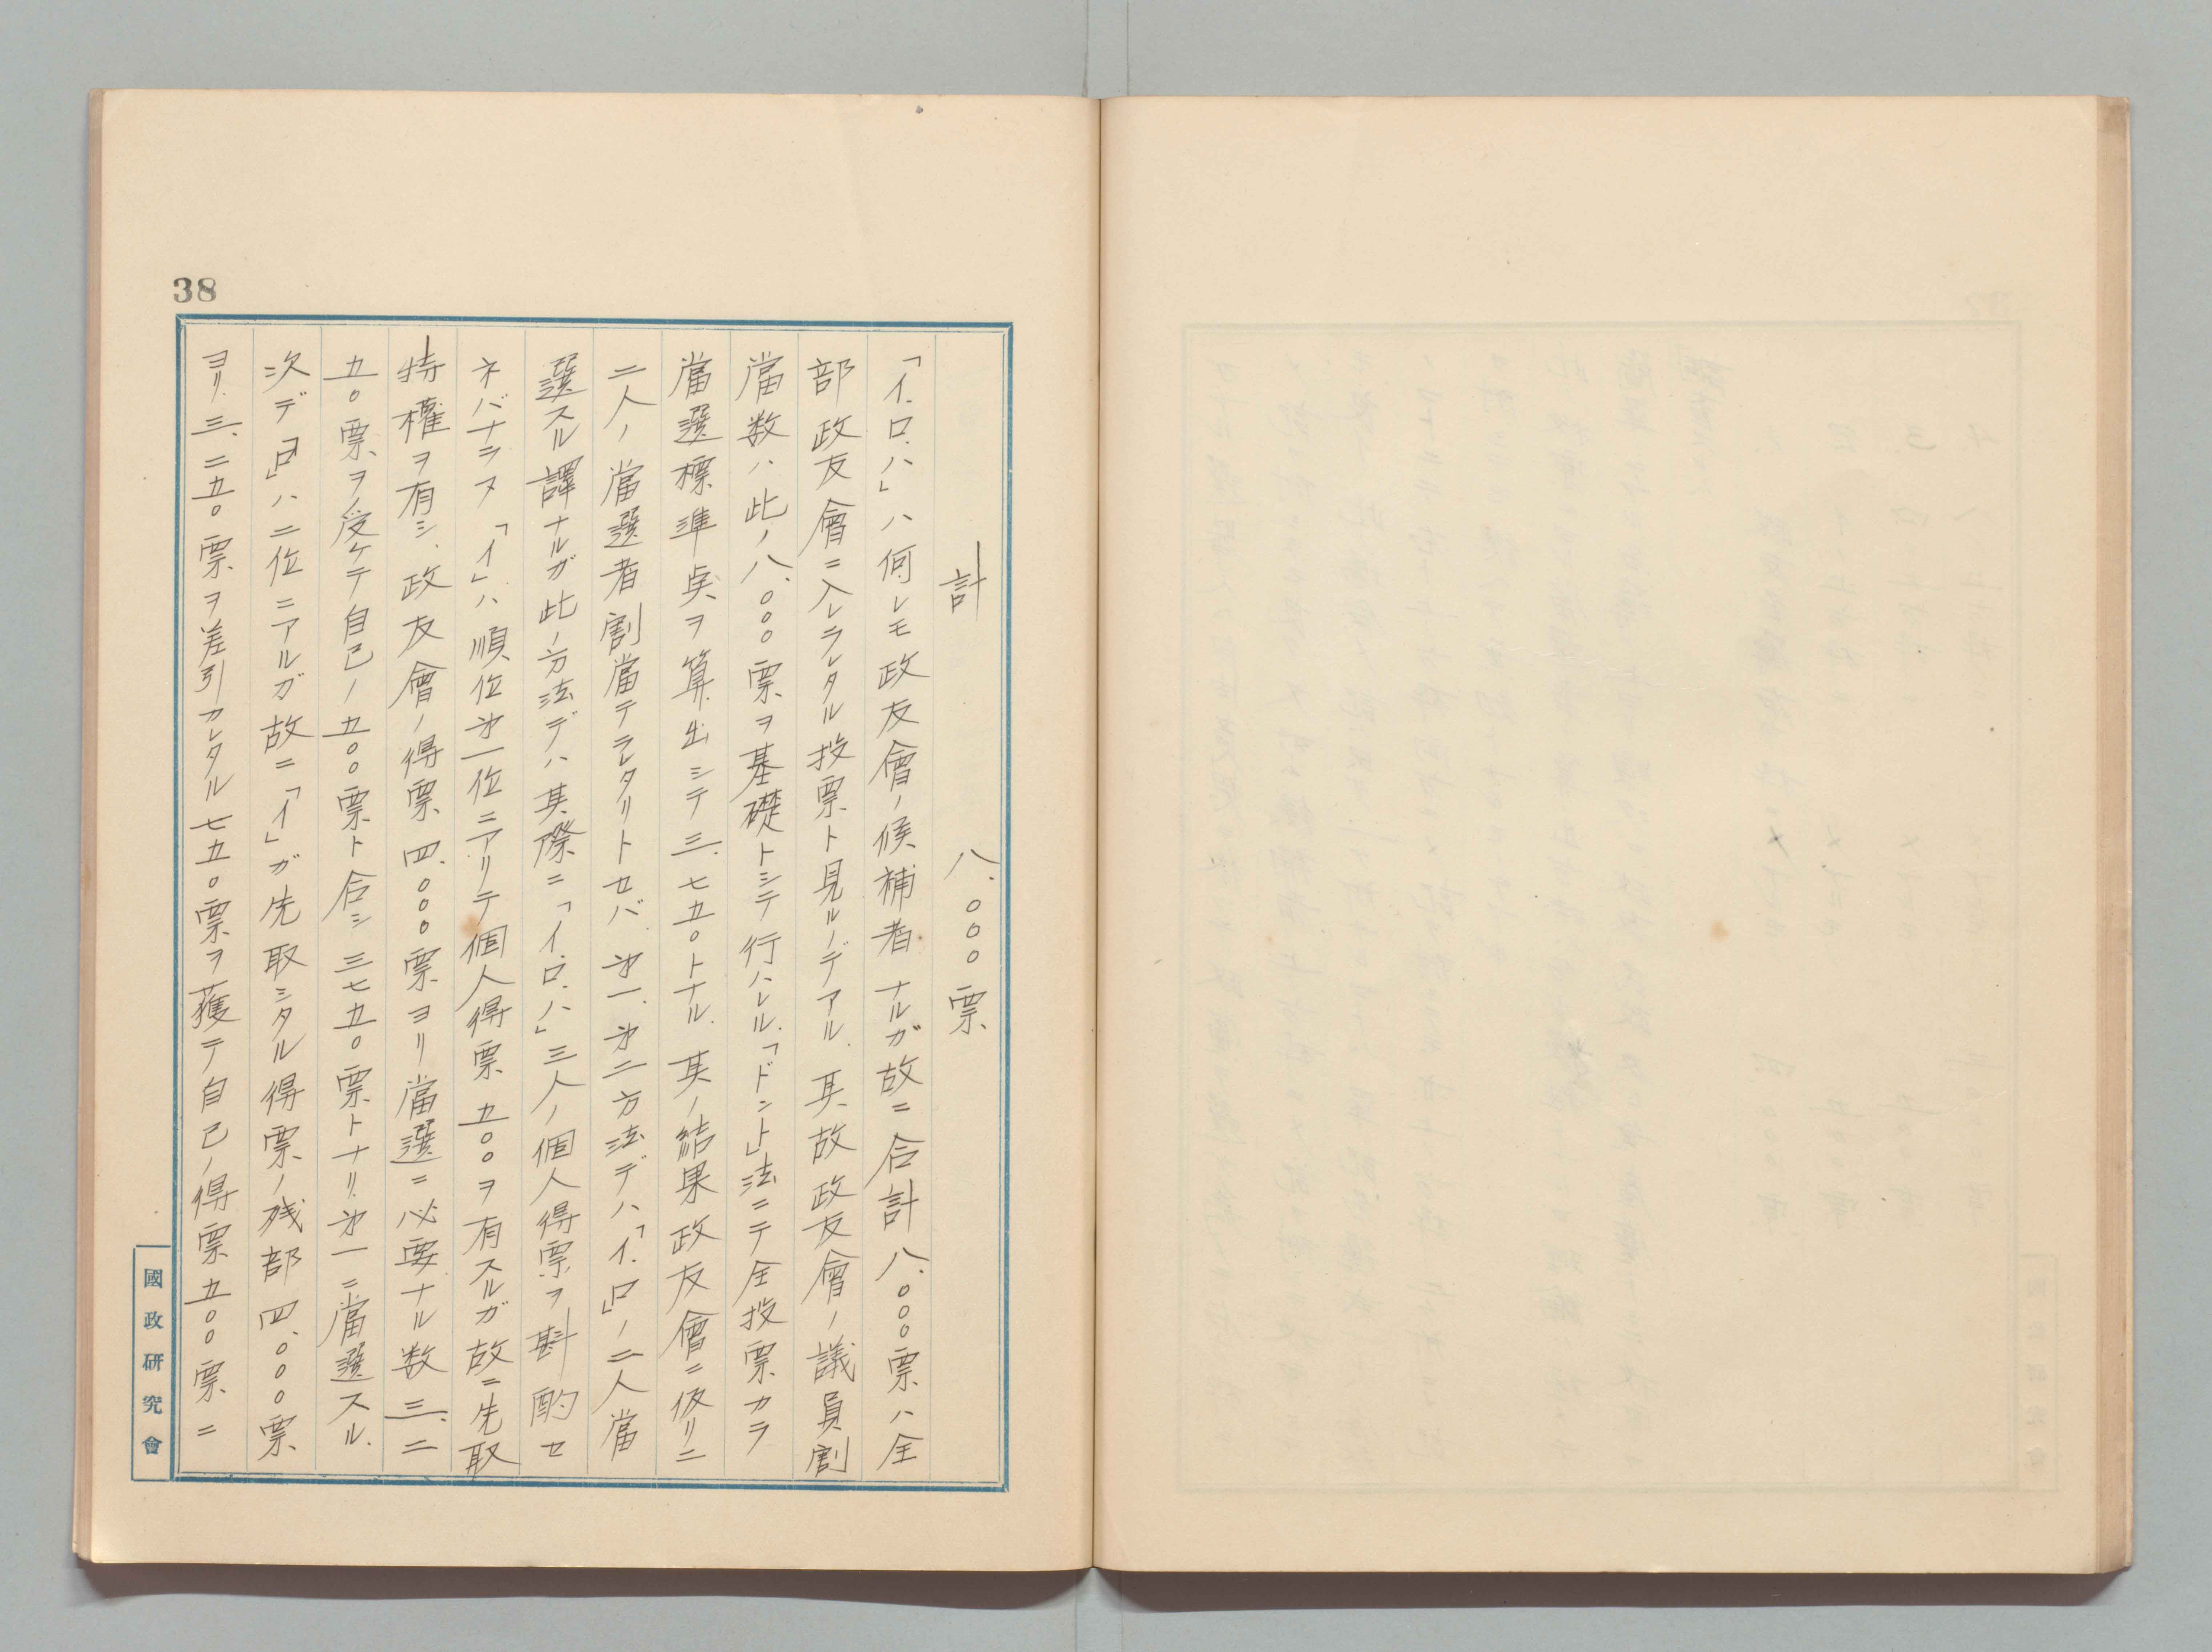 38
計 八、〇〇〇票
「イ、ロ、ハ」ハ何レモ政友會ノ候補者ナルガ故ニ合計八、〇〇〇票ハ全
部政友會ニ入レラレタル投票ト見ルノデアル、其故政友會ノ議員割
當数ハ此ノ八、〇〇〇票ヲ基礎トシテ行ハレル、「ドント」法ニテ全投票カラ
當選標準点ヲ算出シテ三、七五〇トナル、其ノ結果政友會ニ仮リニ
二人ノ當選者割當テラレタリトセバ、㐧一、㐧二方法デハ、「イ、ロ」ノ二人當
選スル譯ナルガ此ノ方法デハ其際ニ「イ、ロ、ハ」三人ノ個人得票ヲ斟酌セ
ネバナラヌ「イ」ハ順位㐧一位ニアリテ個人得票五〇〇ヲ有スルガ故ニ先取
特權ヲ有シ、政友會ノ得票四、〇〇〇票ヨリ當選ニ必要ナル数三、二
五〇票ヲ受ケテ自己ノ五〇〇票ト合シ三七五〇票トナリ、㐧一ニ當選スル、
次デ「ロ」ハ二位ニアルガ故ニ「イ」ガ先取シタル得票ノ残部四、〇〇〇票
ヨリ、三、二五〇票ヲ差引カレタル七五〇票ヲ獲テ自己ノ得票五〇〇票ニ
國政研究會